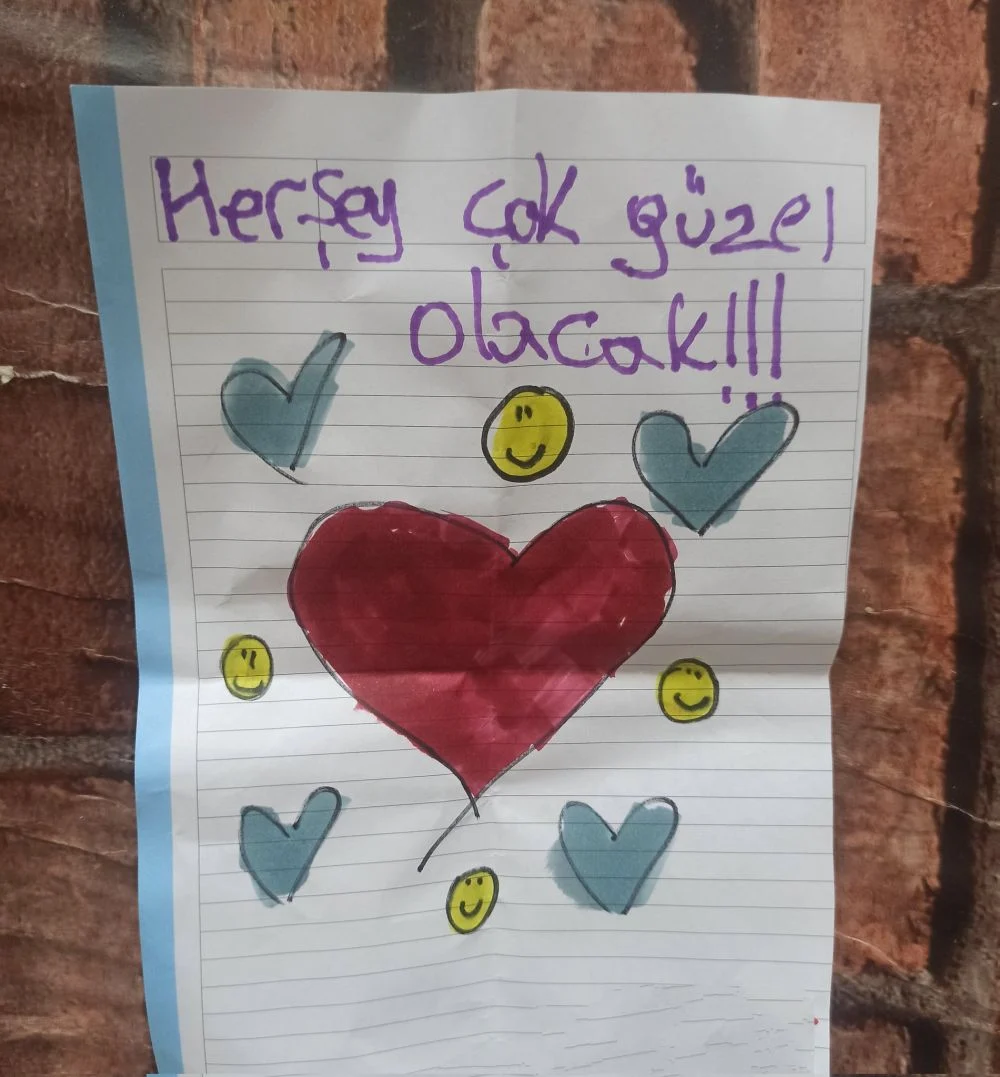 Herşey çok güzel
olacak!!!